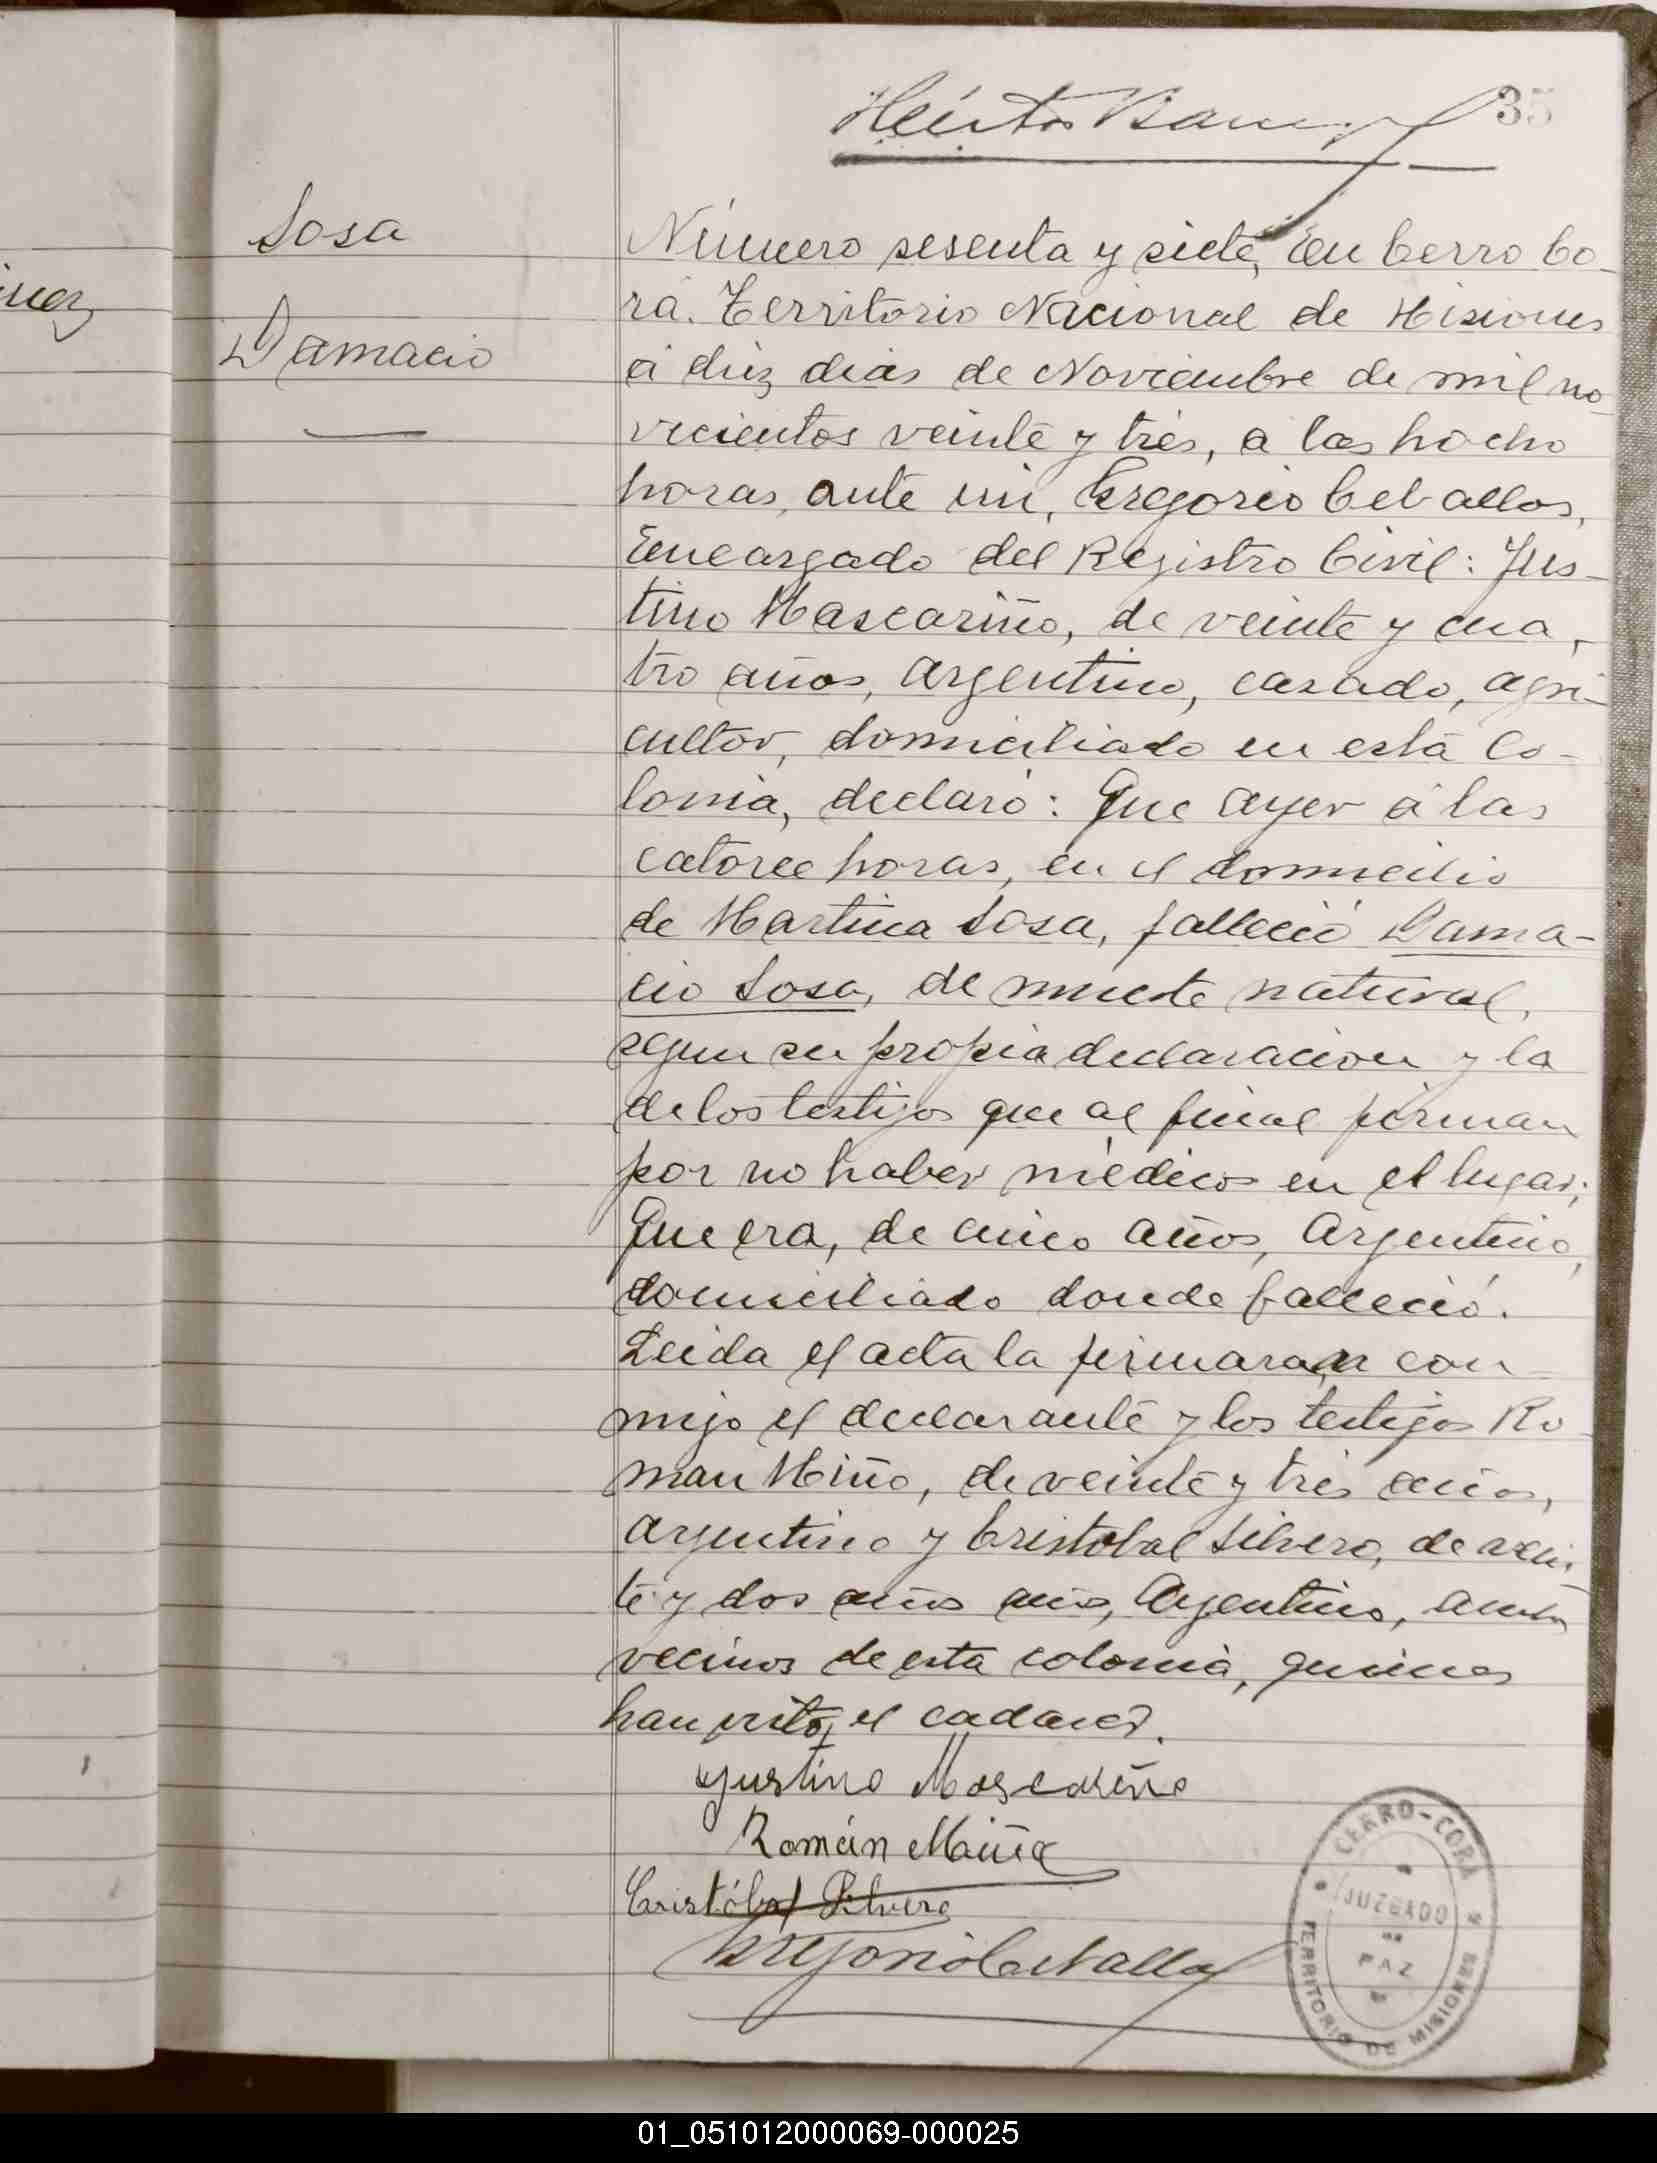 35
Sosa
Damacio
Número sesenta y siete, En Cerro Co-
rá. Territorio Nacional de Misiones
á diez dias de Noviembre de mil no-
vecientos veinte y tres, a las hocho
horas, ante mi, Gregorio Ceballos,
Encargado del Registro Civil: Jus-
tino Mascariño, de veinte y cua-
tro años, argentino, casado, agri-
cultor, domiciliado en esta Co-
lonia, declaró: Que ayer á las
catorce horas, en el domicilio
de Martina Sosa, falleció Dama-
cio Sosa, de muerte natural,
segun su propia declaracion y la
de los testigos que al final firman
por no haber médicos en el lugar;
Que era, de cinco años, Argentino,
domiciliado donde falleció.
Leida el acta la firmaran con-
migo el declarante y los testigos Ro-
man Miño, de veinte y tres años,
argentino y Cristobal Silvero, de vein-
te y dos años años, Argentino, ambos
vecinos de esta colonia, quienes
han visto el cadaver.
Justino Mascariño
Román Miño
Cristóbal Silvero
Gregorio Ceballos
CERRO-CORÁ
JUZGADO
DE
PAZ
TERRITORIO DE MISIONES
01_051012000069-000025